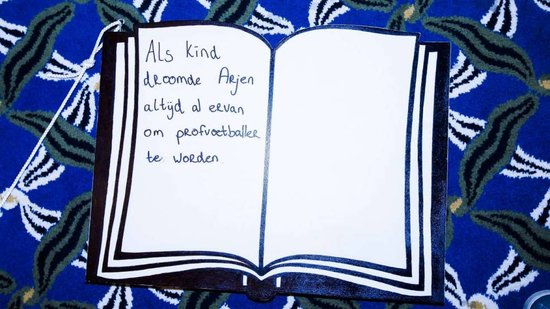 Als kind
droomde Arjen
altijd al ervan
om profvoetballer
te worden